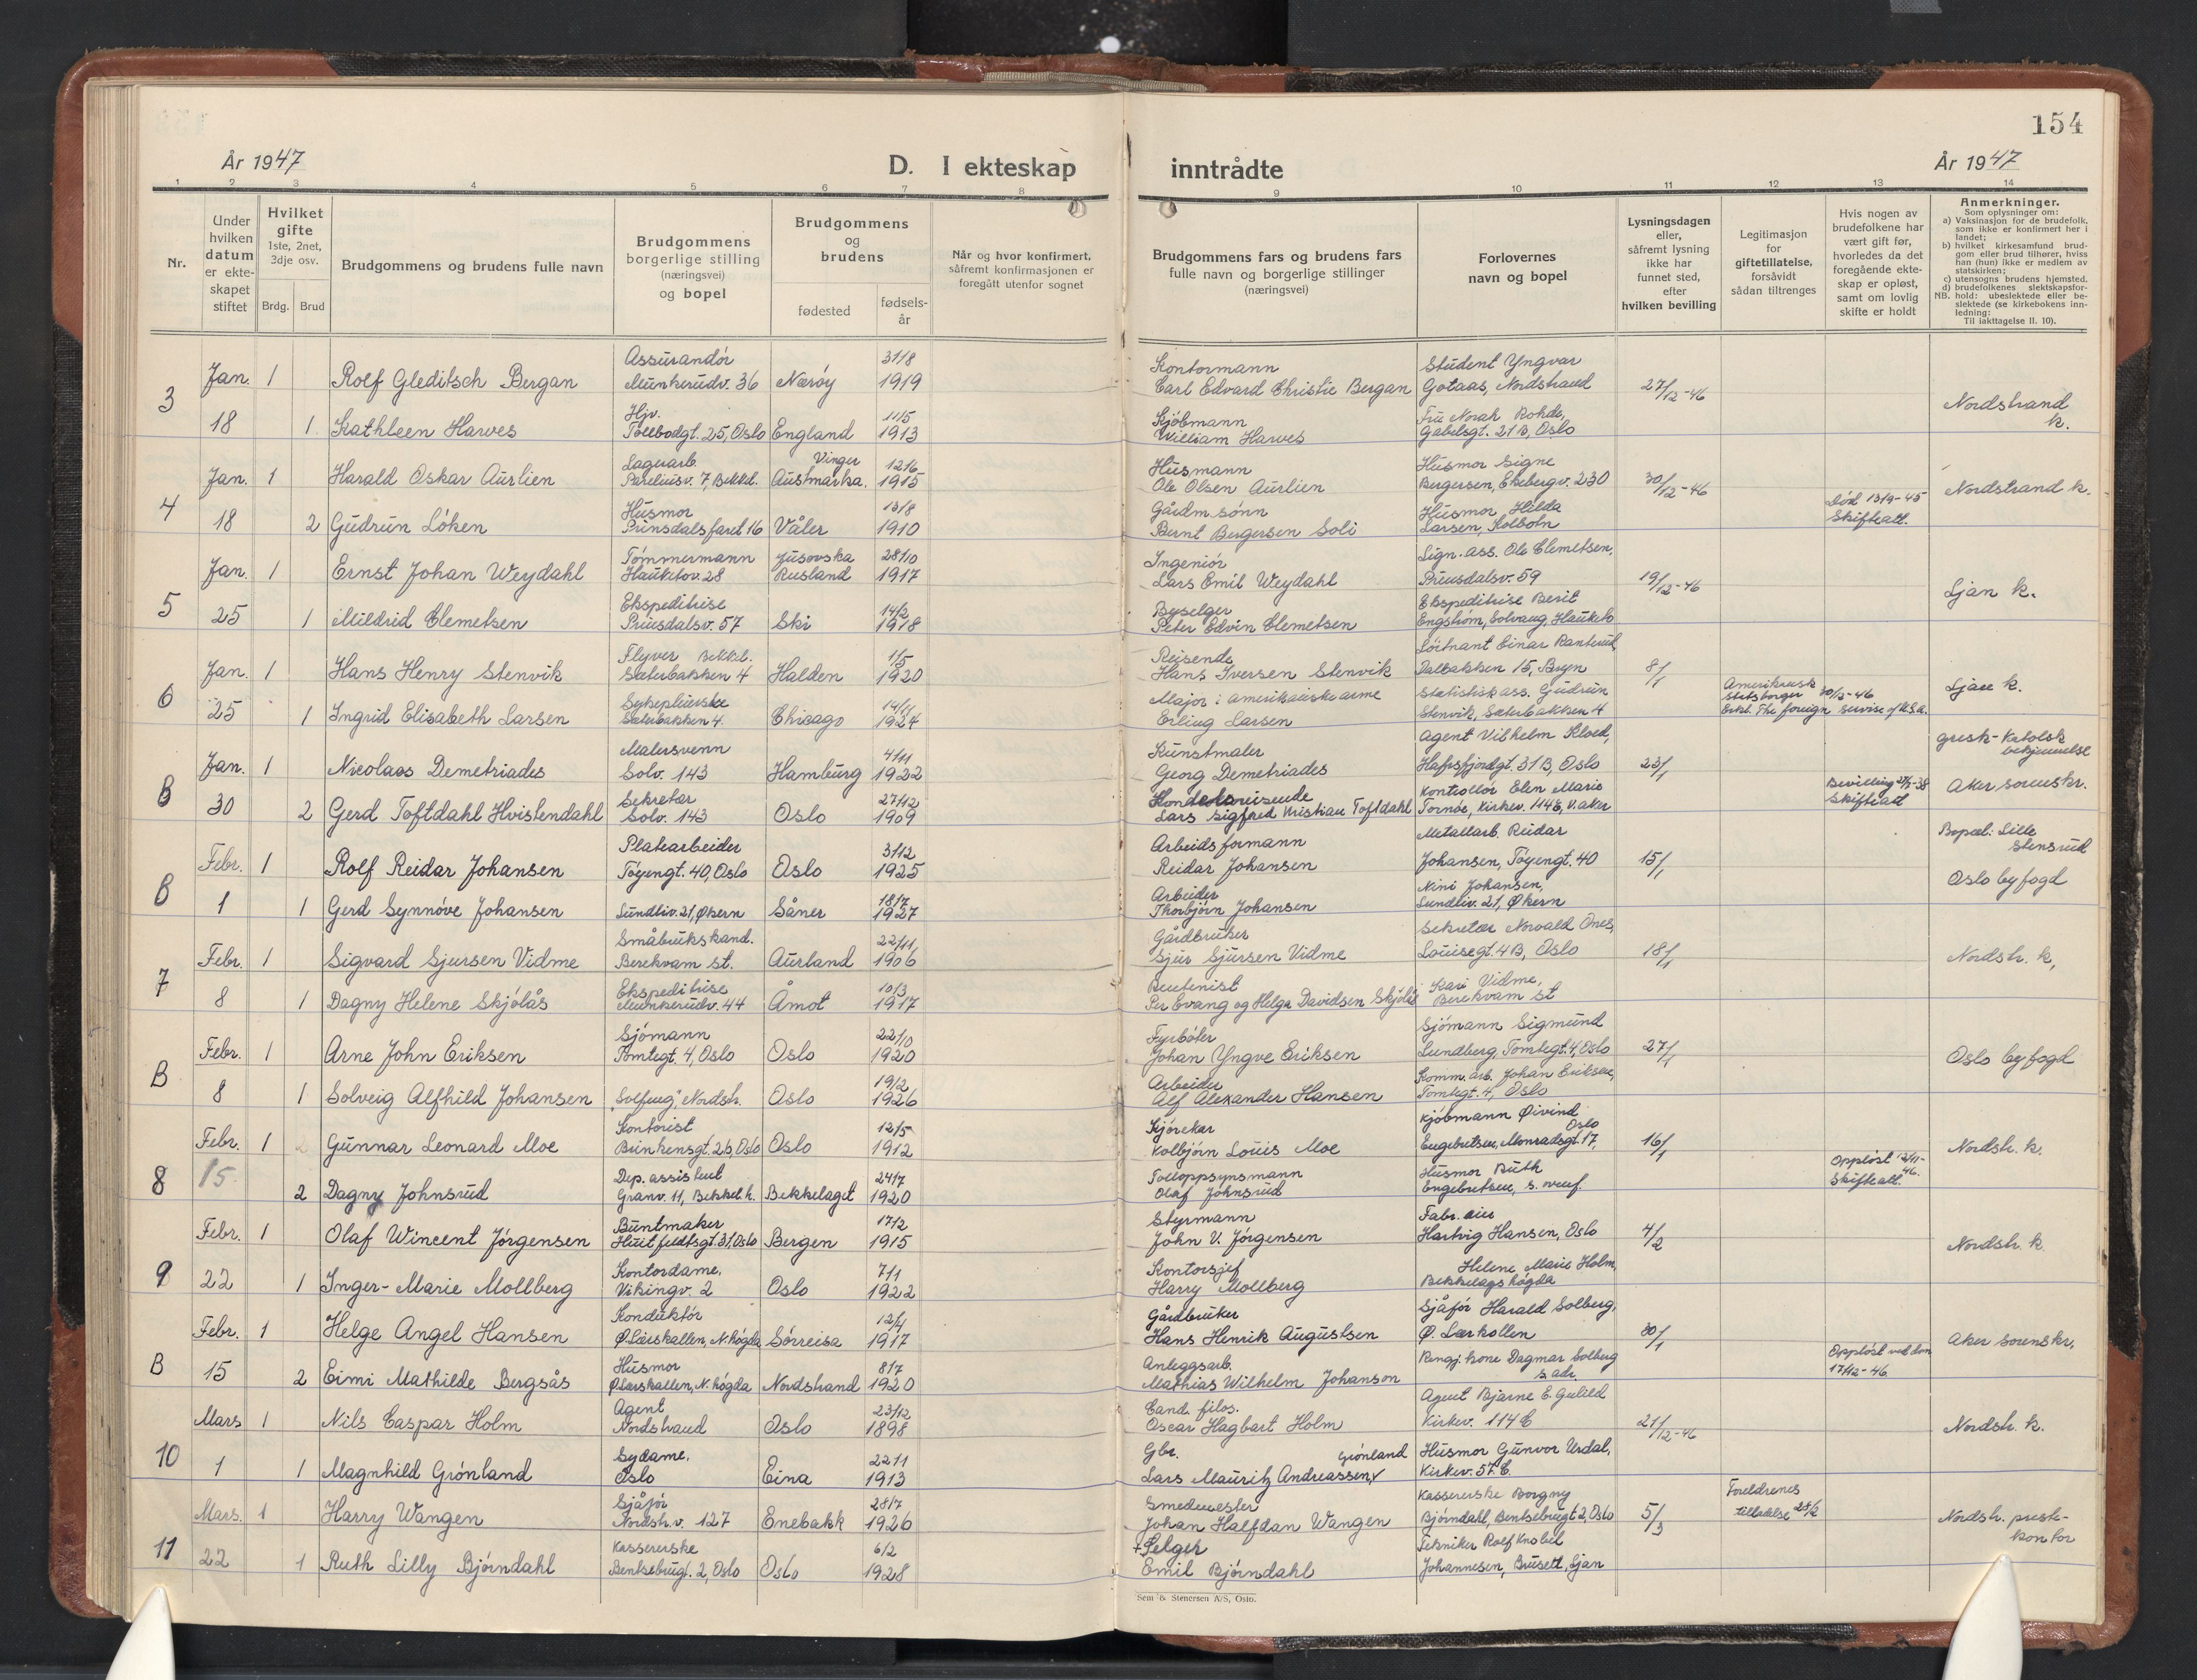 154
År 1947
D. I ekteskap inntrådte
År 1947
1 2 3 4 5 6 7 8 9 10 11 12 13 14
Nr.
Under hvilken datum er ekteskapet stiftet
Hvilket gifte 1ste, 2net, 3dje osv.
Brdg. Brud
Brudgommens og brudens fulle navn
Brudgommens borgerlige stilling (næringsvei) og bopel
Brudgommens og brudens
fødested
fødselsår
Når og hvor konfirmert, såfremt konfirmasjonen er foregått utenfor sognet
Brudgommens fars og brudens fars fulle navn og borgerlige stillinger (næringsvei)
Forlovernes navn og bopel
Lysningsdagen eller, såfremt lysning ikke har funnet sted, efter hvilken bevilling
Legitimasjon for giftetillatelse, forsåvidt sådan tiltrenges
Hvis nogen av brudefolkene har vært gift før, hvorledes da det foregående ekteskap er opløst, samt om lovlig skifte er holdt
Anmerkninger.
Som oplysninger om:
a) Vaksinasjon for de brudefolk, som ikke er konfirmert her i landet;
b) hvilket kirkesamfund brudgom eller brud tilhører, hviss han (hun) ikke er medlem av statskirken;
c) utensogns brudens hjemsted.
d) brudefolkenes slektskapsforhold: ubeslektede eller beslektede (se kirkebokens innledning:
NB. Til iakttagelse II. 10).
3 Jan. 1 Rolf Gleditsch Bergan Assurandør Munkerudv. 36 Nærøy 31/8 1919 Kontormann Carl Edvard Christie Bergan Student Yngvar Gotaas, Nordstrand 27/12-46 Nordstrand k.
18 1 Kathleen Harves Hjv. Tollbodgt. 25, Oslo England 11/5 1913 Kjøbmann William Harves Fru Norah Rohde, Gabelsgt. 21B, Oslo
4 Jan. 1 Harald Oskar Aurlien Lagerarb. Pareliusv. 7, Bekkel. Vinger Austmarka. 12/6 1915 Husmann Ole Olsen Aurlien Husmor Signe Bergersen, Ekebergv. 230 30/12-46 Nordstrand k.
18 2 Gudrun Løken Husmor Prinsdalsfaret 16 Våler 13/8 1910 Gårdm.sønn Bernt Bergersen Soli Husmor Hilda Larsen, Kolbotn Død 13/9-45 Skifteatt.
5 Jan. 1 Ernst Johan Weydahl Tømmermann Hauketov. 28 Jusovska Rusland 28/10 1917 Ingeniør Lars Emil Weydahl Lign. ass. Ole Clemetsen, Prinsdalsv. 59 19/12-46 Ljan k.
25 1 Mildrid Clemetsen Ekspeditrise Prinsdalsv. 57 Ski 14/2 1918 Byselger Peter Edvin Clemetsen Ekspeditrise Berit Engstrøm, Solvang, Hauketo
6 Jan. 1 Hans Henry Stenvik Flyver Bekkel. Sæterbakken 4 Halden 1/5 1920 Reisende Hans Iversen Stenvik Løitnant Einar Ranterud, Dalbakken 15, Bryn 8/1 Ljan k.
25 1 Ingrid Elisabeth Larsen Sykepleierske Sæterbakken 4. Chicago 14/11 1924 Major i amerikanske arme Erling Larsen Statistisk ass. Gudrun Stenvik, Sæterbakken 4 Amerikansk statsborger 30/12-46 Erkl. The foreign servise of U.S.A.
B Jan. 1 Nicolaos Demetriades Malersvenn Solv. 143 Hamburg 4/11 1922 Kunstmaler Georg Demetriades Agent Vilhelm Kloed, Hafrsfjordgt. 31B, Oslo 23/1 gresk-katolsk bekjennelse
30 2 Gerd Toftdahl Hvistendahl Sekretær Solv. 143 Oslo 27/12 1909 Handelsreisende Lars Sigfred Kristian Toftdahl Kontrollør Elen Marie Tornøe, Kirkev. 114E, V. aker Bevilling 27/5-38 Skifteatt Aker sorenskr.
B Febr. 1 Rolf Reidar Johansen Platearbeider Tøyengt. 40, Oslo Oslo 3/12 1925 Arbeidsformann Reidar Johansen Metallarb. Reidar Johansen, Tøyengt. 40 15/1 Bopæl: Lille Stensrud
1 1 Gerd Synnøve Johansen Lundliv. 21, Økern Såner 18/7 1927 Arbeider Thorbjørn Johansen Nini Johansen, Lundliv. 21, Økern Oslo byfogd
7 Febr. 1 Sigvard Sjursen Vidme Småbrukskand. Berekvam st. Aurland 22/11 1906 Gårdbruker Sjur Sjursen Vidme Sekretær Norvald Ones, Louisegt. 4B, Oslo 18/1 Nordstr. k,
8 1 Dagny Helene Skjølås Ekspeditrise Munkerudv. 44 Åmot 10/3 1917 Per Evang og Helga Davidsen Skjølås Kari Vidme, Berekvam st
B Febr. 1 Arne John Eriksen Sjømann Tomtegt. 4, Oslo Oslo 22/10 1920 Fyrbøter Johan Yngve Eriksen Sjømann Sigmund Lundberg, Tomtegt. 4, Oslo 27/1 Oslo byfogd
8 1 Solveig Alfhild Johansen "Solfeng", Nordstr. Oslo 19/2 1926 Arbeider Alf Alexander Hansen Komm. arb. Johan Eriksen, Tomtegt. 4, Oslo
8 Febr. 1 Gunnar Leonard Moe Kontorist Brinkensgt. 26, Oslo Oslo 12/5 1912 Kjørekar Kolbjørn Louis Moe Kjøbmann Øivind Engebretsen, Monradsgt. 17, Oslo 16/1 Nordstr. k.
15 2 Dagny Johnsrud Dep. assistent Granv. 11, Bekkel. h. Bekkelaget 24/7 1920 Tolloppsynsmann Olaf Johnsrud Husmor Ruth Engebretsen, s. ovenf. Oppløst 12/11-46. Skifteatt.
9 Febr. 1 Olaf Wincent Jørgensen Buntmaker Huitfeldtsgt. 31, Oslo Bergen 17/2 1915 Styrmann John V. Jørgensen Fabr. eier Hartvig Hansen, Oslo 4/2 Nordstr. k.
22 1 Inger-Marie Mollberg Kontordame, Vikingv. 2 Oslo 7/11 1922 Kontorsjef Harry Mollberg Helene Marie Holm, Bekkelagshøgda
B Febr. 1 Helge Angel Hansen Konduktør Ø. Lærskallen, N. høgda Sørreisa 12/4 1917 Gårdbruker Hans Henrik Augustsen Sjåfør Harald Solberg, Ø. Lærkollen 30/1 Aker sorenskr,
15 2 Eimi Mathilde Bergsås Husmor Ø. Lærskallen, N. høgda Nordstrand 8/7 1920 Anleggsarb. Mathias Wilhelm Johanson Rengj. kone Dagmar Solberg s. adr. Oppløst ved dom 17/12-46
10 Mars 1 Nils Caspar Holm Agent Nordstrand Oslo 23/12 1898 Cand. filos. Oscar Hagbart Holm Agent Bjarne E. Gulild Kirkev. 114C 21/12-46 Nordstr. k.
1 1 Magnhild Grønland Sydame, Oslo Eina 22/11 1913 Gbr. Lars Mauritz Andreassen, Grønland Husmor Gunvor Urdal, Kirkev. 57C.
11 Mars. 1 Harry Wangen Sjåfør Nordstr.v. 127 Enebakk 28/7 1926 Smedmester Johan Halfdan Wangen Kassererske Borgny Bjørndahl, Bentsebrugt 2, Oslo 5/3 Foreldrenes tilladelse 28/2 Nordstr. prestekontor
22 1 Ruth Lilly Bjørndahl Kassererske Bentsebrugt. 2, Oslo Oslo 6/2 1928 +Selger Emil Bjørndahl Tekniker Rolf Knobel Johannesen, Brusett, Ljan
Sem & Stenersen A/S, Oslo.